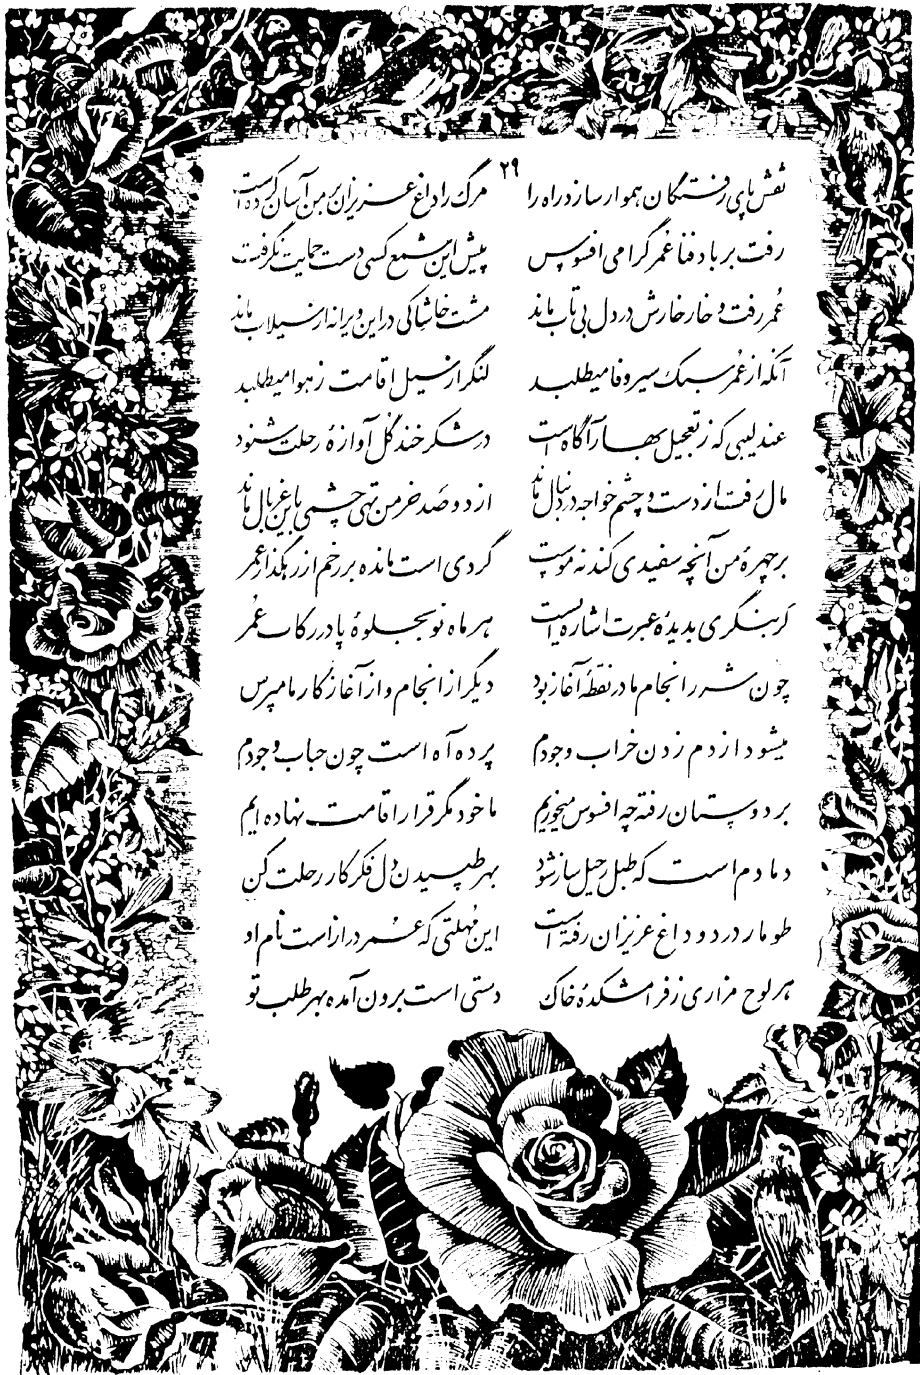 ۲۹
نقش پای رفتگان هموار سازد راه را	مرگ را داغ عزیزان بر من آسان کرده است
رفت بر باد فنا عمر گرامی افسوس	پیش این شمع کسی دست حمایت نگرفت
عُمر رفت و خار خارش در دل بی تاب ماند	مشت خاشاکی در این ویرانه از سیلاب ماند
آنکه از عُمر سبک سیر وفا میطلبد	لنگر از سیل اقامت ز هوا میطلبد
عندلیبی که ز تعجیل بهار آگاه است	در شکر خند گل آوازهٔ رحلت شنود
مال رفت از دست و چشم خواجه در دنبال ماند	از دو صد خرمن تهی چشمی با این غربال ماند
بر چهرهٔ من آنچه سفیدی کند نه موست	گردی است مانده بر رخم از رهگذار عمر
گر بنگری بدیدهٔ عبرت اشاره ایست	هر ماه نو بجلوهٔ پا در رکاب عُمر
چون شرر انجام ما در نقطهٔ آغاز بود	دیگر از انجام و از آغاز کار ما مپرس
میشود از دم زدن خراب وجودم	پرده آه است چون حباب وجودم
بر دوستان رفته چه افسوس میخوریم	ما خود مگر قرار اقامت نهاده ایم
دمادم است که طبل رحیل ساز شود	بهر طپیدن دل فکر کار رحلت کن
طومار درد و داغ عزیزان رفته است	این مُهلتی که عُمر دراز است نام او
هر لوح مزاری ز فرامشکدهٔ خاک	دستی است برون آمده بهر طلب تو